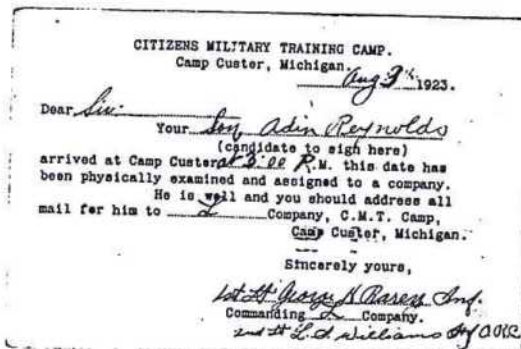 CITIZENS MILITARY TRAINING CAMP.
Camp Custer, Michigan.
Aug 3 1923.
Dear Sir:
Your Son Adin Reynolds
(candidate to sign here)
arrived at Camp Custer at 3:00 P.M. this date has
been physically examined and assigned to a company.
He is well and you should address all
mail for him to L Company, C.M.T. Camp,
Camp Custer, Michigan.
Sincerely yours,
1st Lt George Inf.
Commanding L Company.
2nd Lt L. Williams